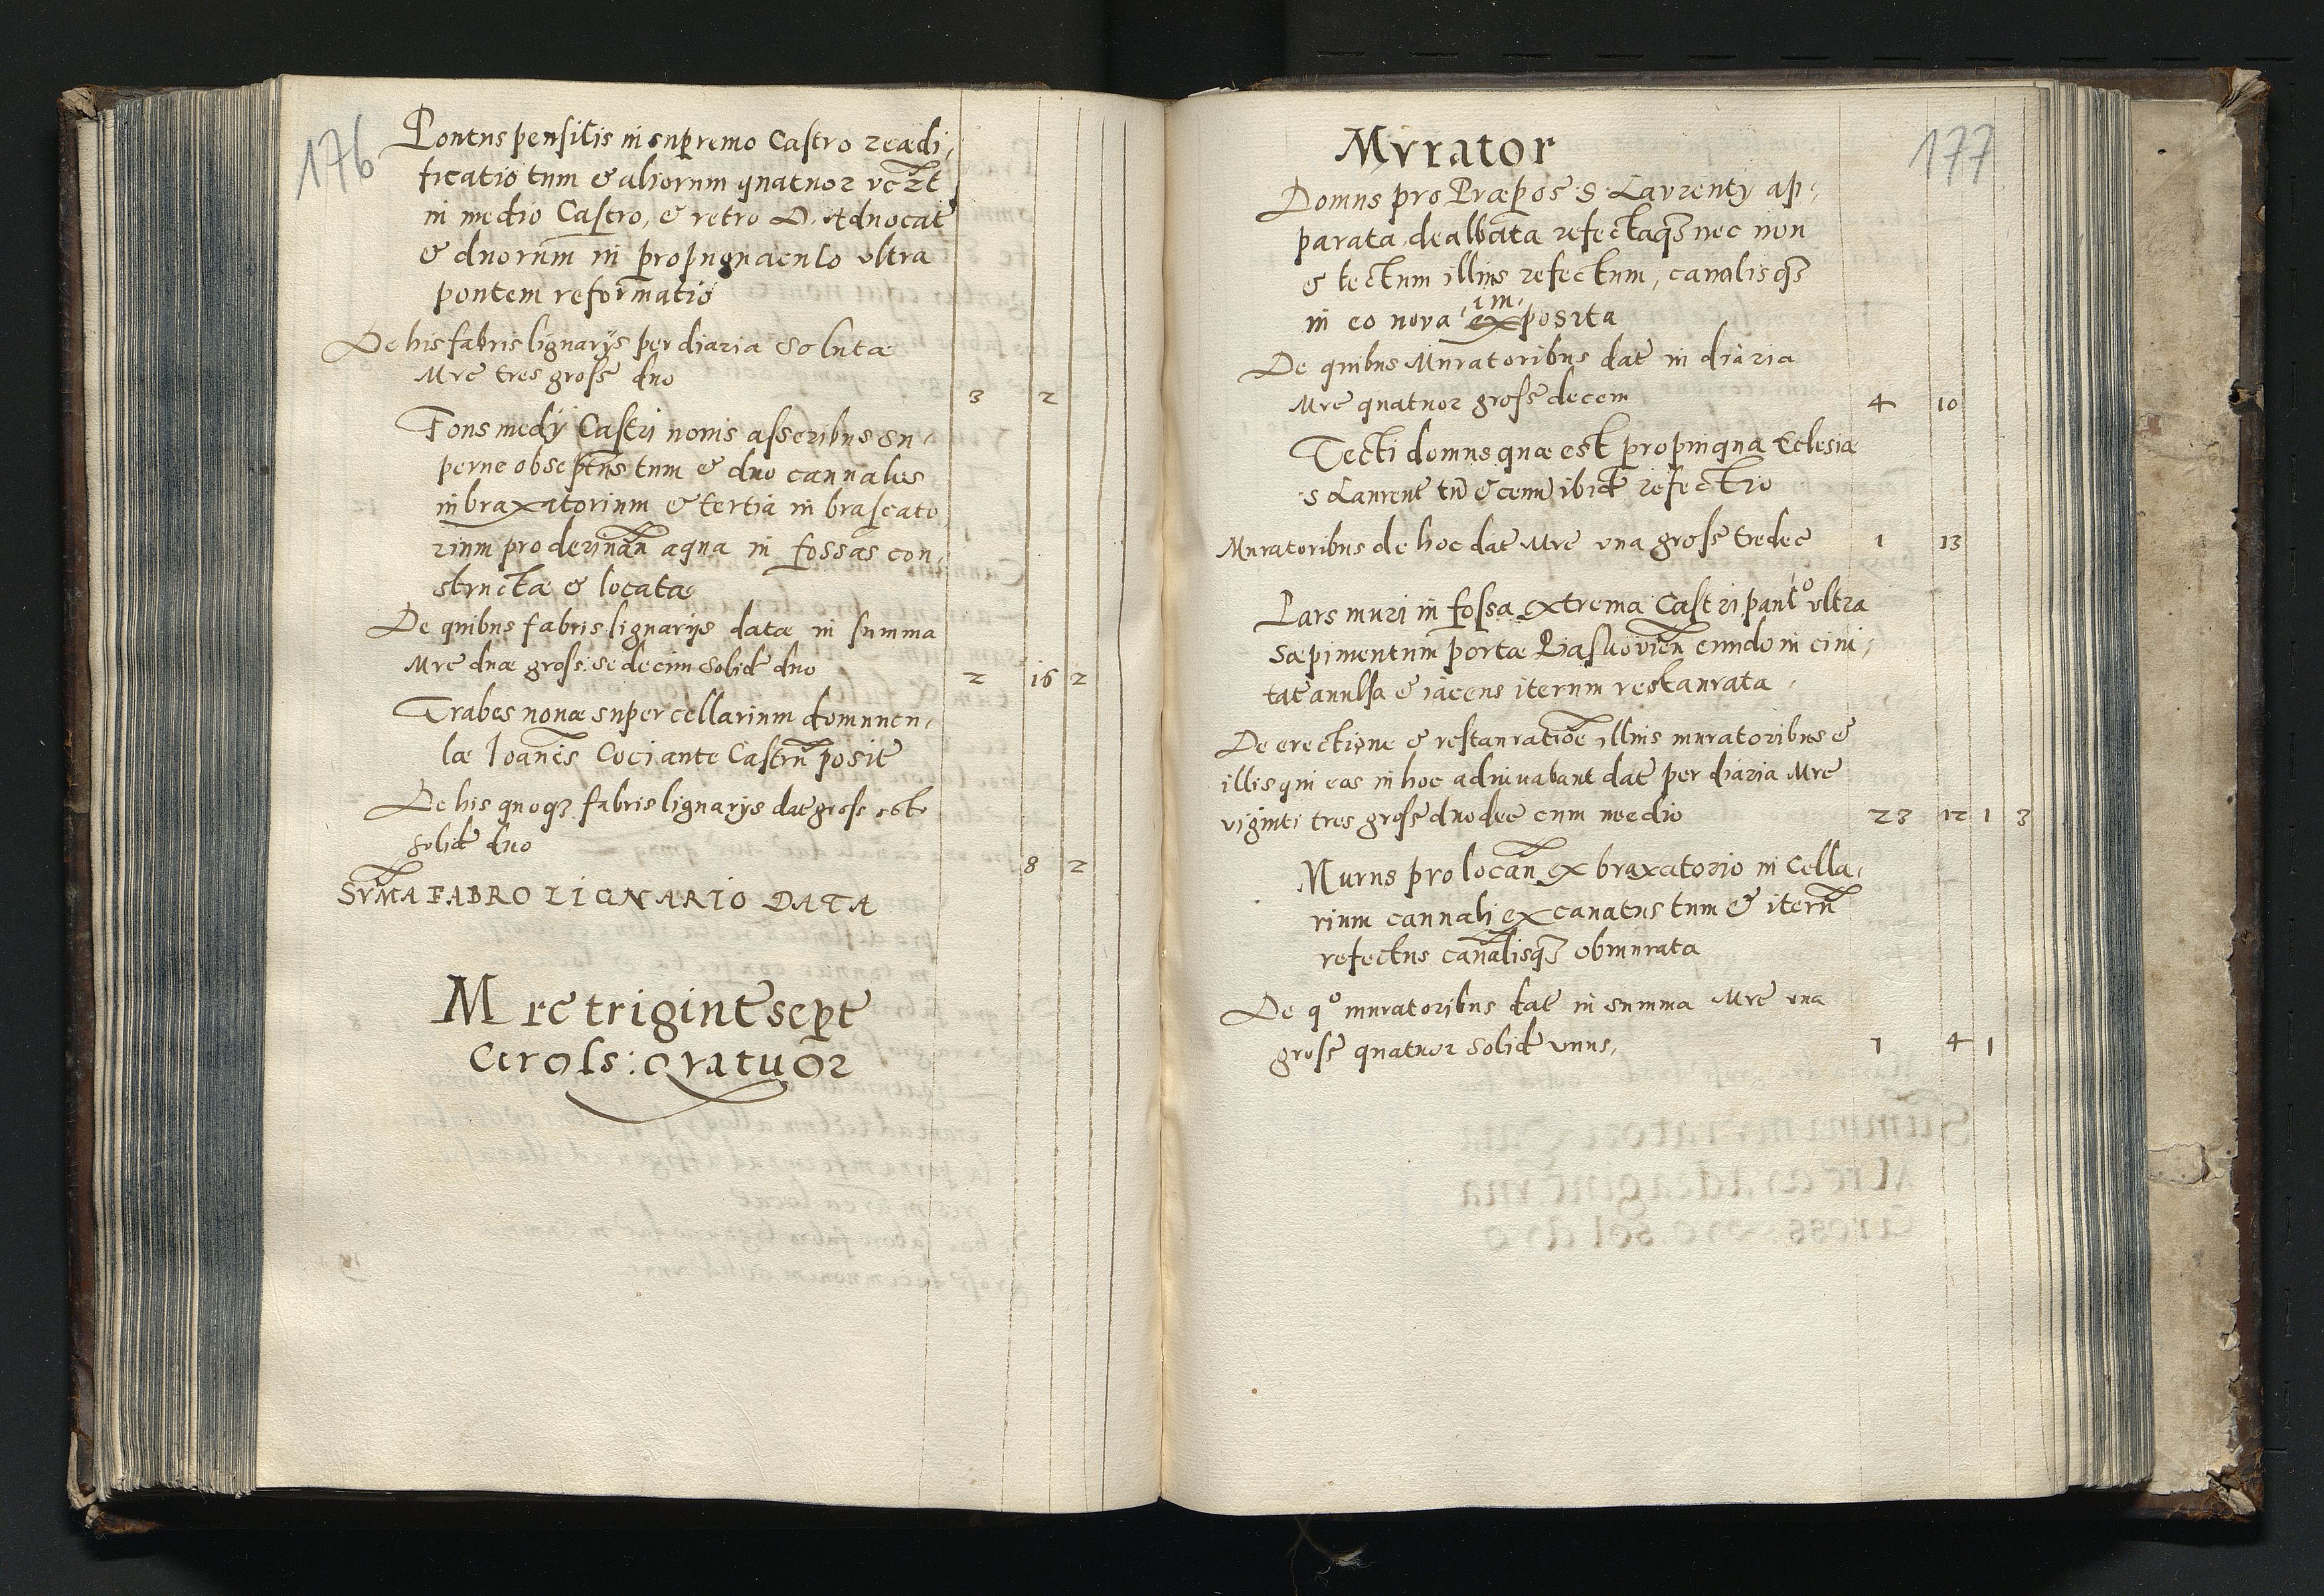 176
Pontus pensilis in supremo Castro reædi,
ficatio tum & aliorum quatuor vczt
in medio Castro, & retro D. Aduocat
& duorum in propugnaculo vltra
pontem reformatio
De his fabris lignarijs per diaria soluta
Mrc tres gross duo 3 2
Fons medÿ Castri nouis asseribus su,
perne obseptus tum & duo cannales
in braxatorium & tertia in braseato,
rium pro deriuan aqua in fossas con,
structæ & locatæ
De quibus fabris lignarijs datæ in summa
Mrc duæ gross: sedecim solid duo 2 16 2
Trabes nouæ super cellarium domuncu,
læ Joanis Coci ante Castru posit
De his quoq3 fabris lignarijs dat gross octo
solid duo 8 2
SVMA FABRO LIGNARIO DATA
Mrc trigint sept
Grols: qvatuor
177
Mvrator
Domus pro Præpos S. Lavrenty ap,
parata, dealbata refectaq3 nec non
& tectum illius refectum, canalisq3
im,
in eo nova exposita
De quibus Muratoribus dat in diaria
Mrc quatuor gross decem 4 10
Tecti domus quæ est propinqua Eclesiæ
S Laurent tu & cenu ibid refectio
Muratoribus de hoc dat Mrc vna gross tredec 1 13
Pars muri in fossa extrema Castri paulo vltra
Sæpimentum portæ Biaskovien eundo in ciui,
tat auulsa & iacens iterum restaurata
De erectione & restauratioe illius muratoribus &
illis qui eos in hoc adiuuabant dat per diaria Mrc
viginti tres gross duodec cum medio 23 12 1 3
Murus pro locan ex braxatorio in Cella,
rium cannali excauatus tum & iteru
refectus canalisq3 obmurata
De qo muratoribus dat in summa Mrc vna
gross quatuor solid vnus, 1 4 1